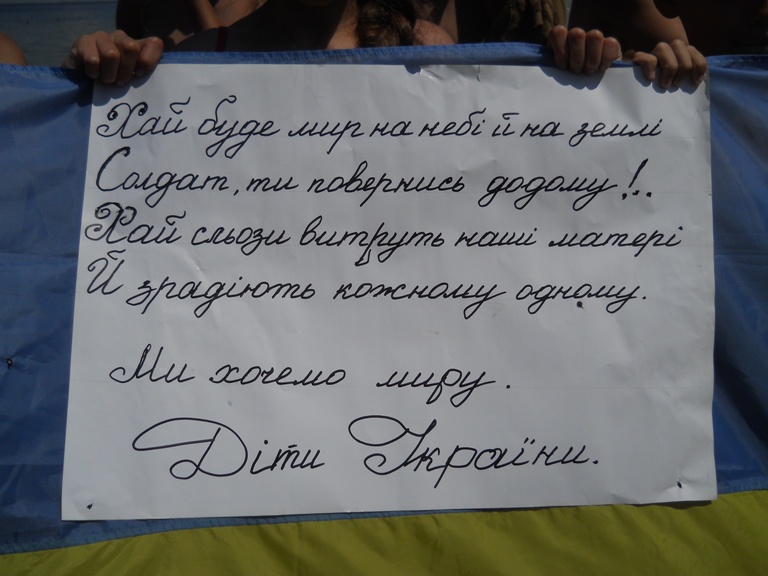 Хай буде мир на небі й на землі
Солдат, ти повернись додому!..
Хай сльози витруть наші матері
Й зрадіють кожному одному.
Ми хочемо миру.
Діти України.